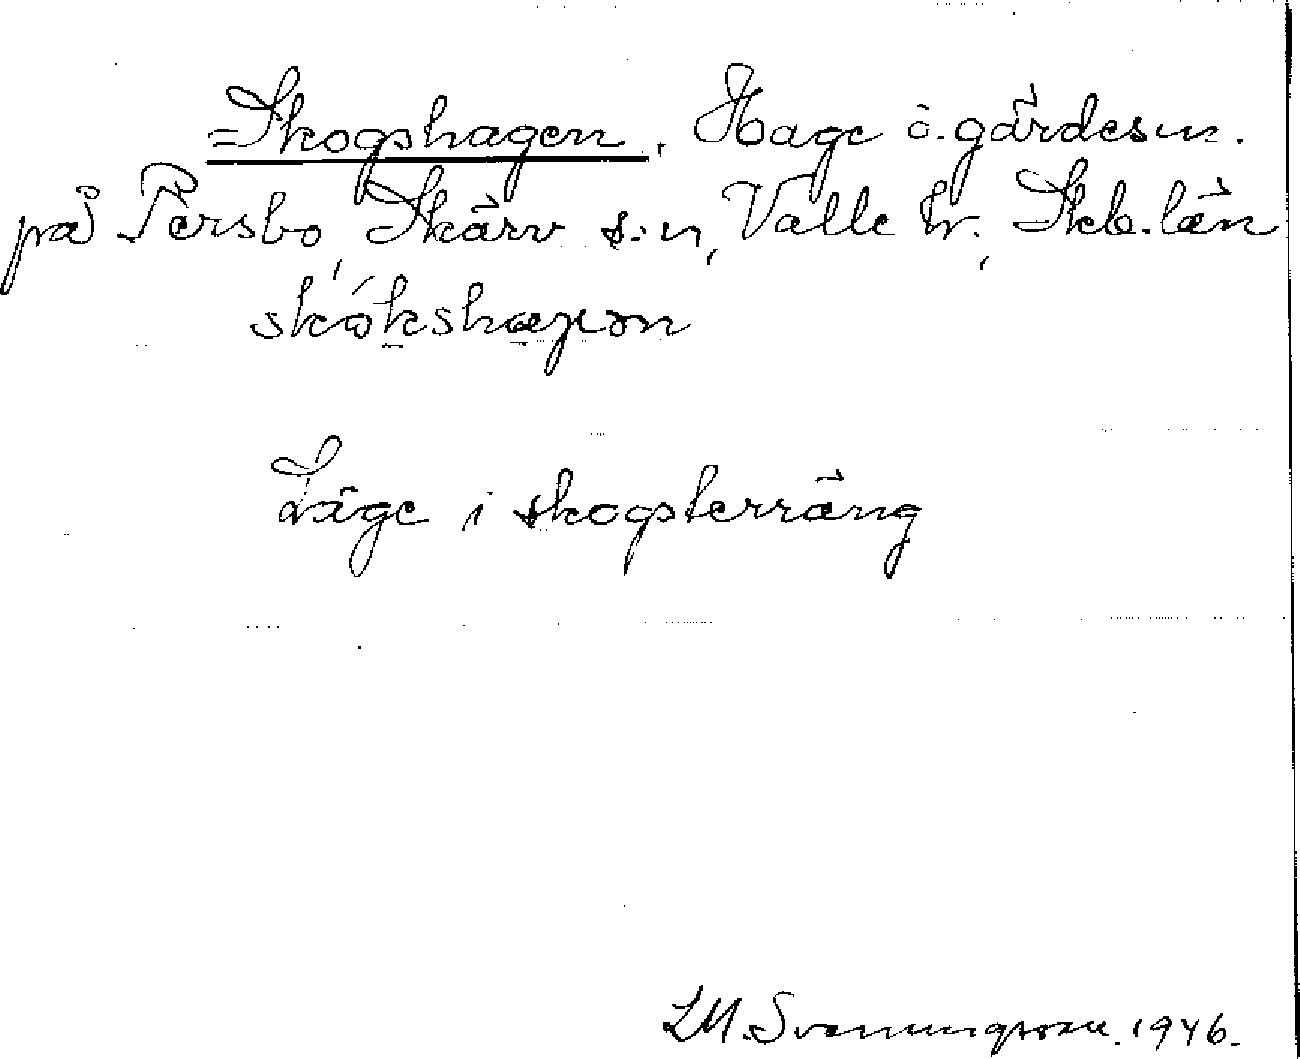 =Skogshagen, Hage o. gärdesn.
på Persbo, Skärv s:n, Valle hr., Skb. län
skókshaγən
Läge i skogsterräng
LM. Svenungsson. 1946.